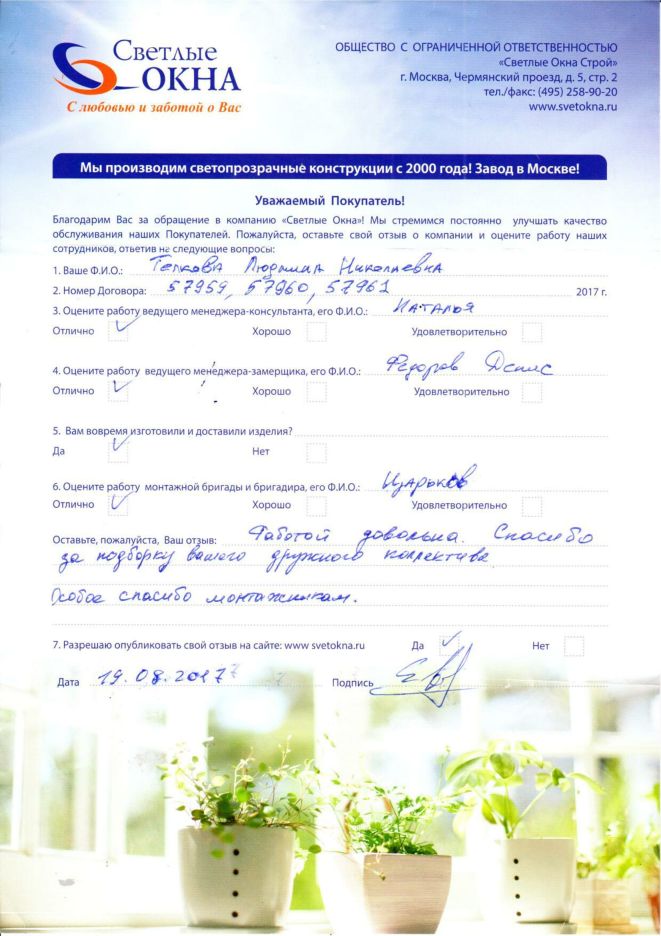 Светлые
ОКНА
С любовью и заботой о Вас
ОБЩЕСТВО С ОГРАНИЧЕННОЙ ОТВЕТСТВЕННОСТЬЮ
«Светлые Окна Строй»
г. Москва, Чермянский проезд, д. 5, стр. 2
тел./факс: (495) 258-90-20
www.svetokna.ru
Мы производим светопрозрачные конструкции с 2000 года! Завод в Москве!
Уважаемый Покупатель!
Благодарим Вас за обращение в компанию «Светлые Окна»! Мы стремимся постоянно улучшать качество
обслуживания наших Покупателей. Пожалуйста, оставьте свой отзыв о компании и оцените работу наших
сотрудников, ответив не следующие вопросы:
1. Ваше Ф.И.О.: Людмила Николаевна
2. Номер Договора: 57959, 57960, 57961 2017 г.
3. Оцените работу ведущего менеджера-консультанта, его Ф.И.О.: Наталья
Отлично Хорошо Удовлетворительно
4. Оцените работу ведущего менеджера-замерщика, его Ф.И.О.: Федоров Денис
Отлично Хорошо Удовлетворительно
5. Вам вовремя изготовили и доставили изделия?
Да Нет
6. Оцените работу монтажной бригады и бригадира, его Ф.И.О.: Царьков
Отлично Хорошо Удовлетворительно
Оставьте, пожалуйста, Ваш отзыв: Работой довольна. Спасибо
за подборку вашего дружного коллектива
Особое спасибо монтажникам.
7. Разрешаю опубликовать свой отзыв на сайте: www svetokna.ru Да Нет
Дата 19.08.2017 Подпись